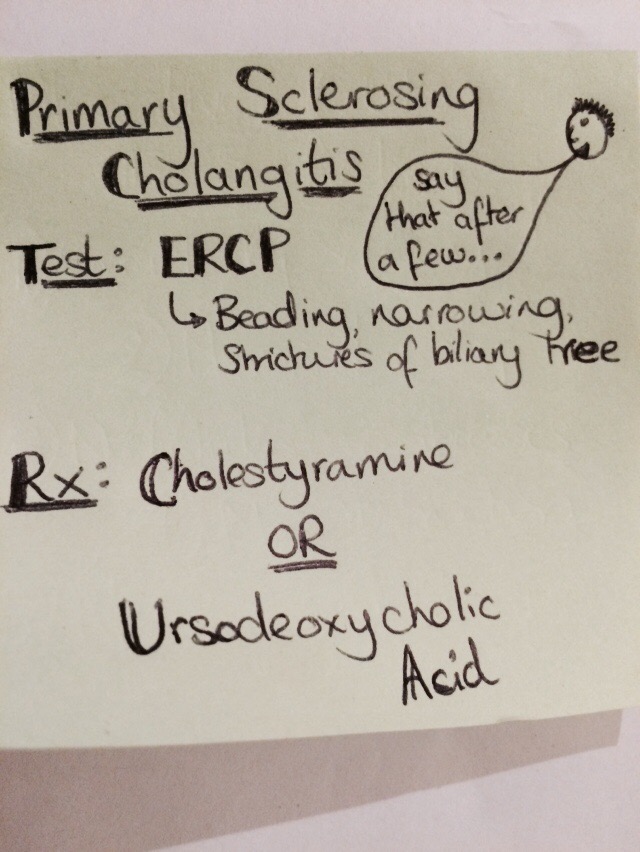 Primary Sclerosing
Cholangitis
say
that after
a few...
Test: ERCP
↳ Beading, narrowing,
Strictures of biliary tree
Rx: Cholestyramine
OR
Ursodeoxycholic
Acid